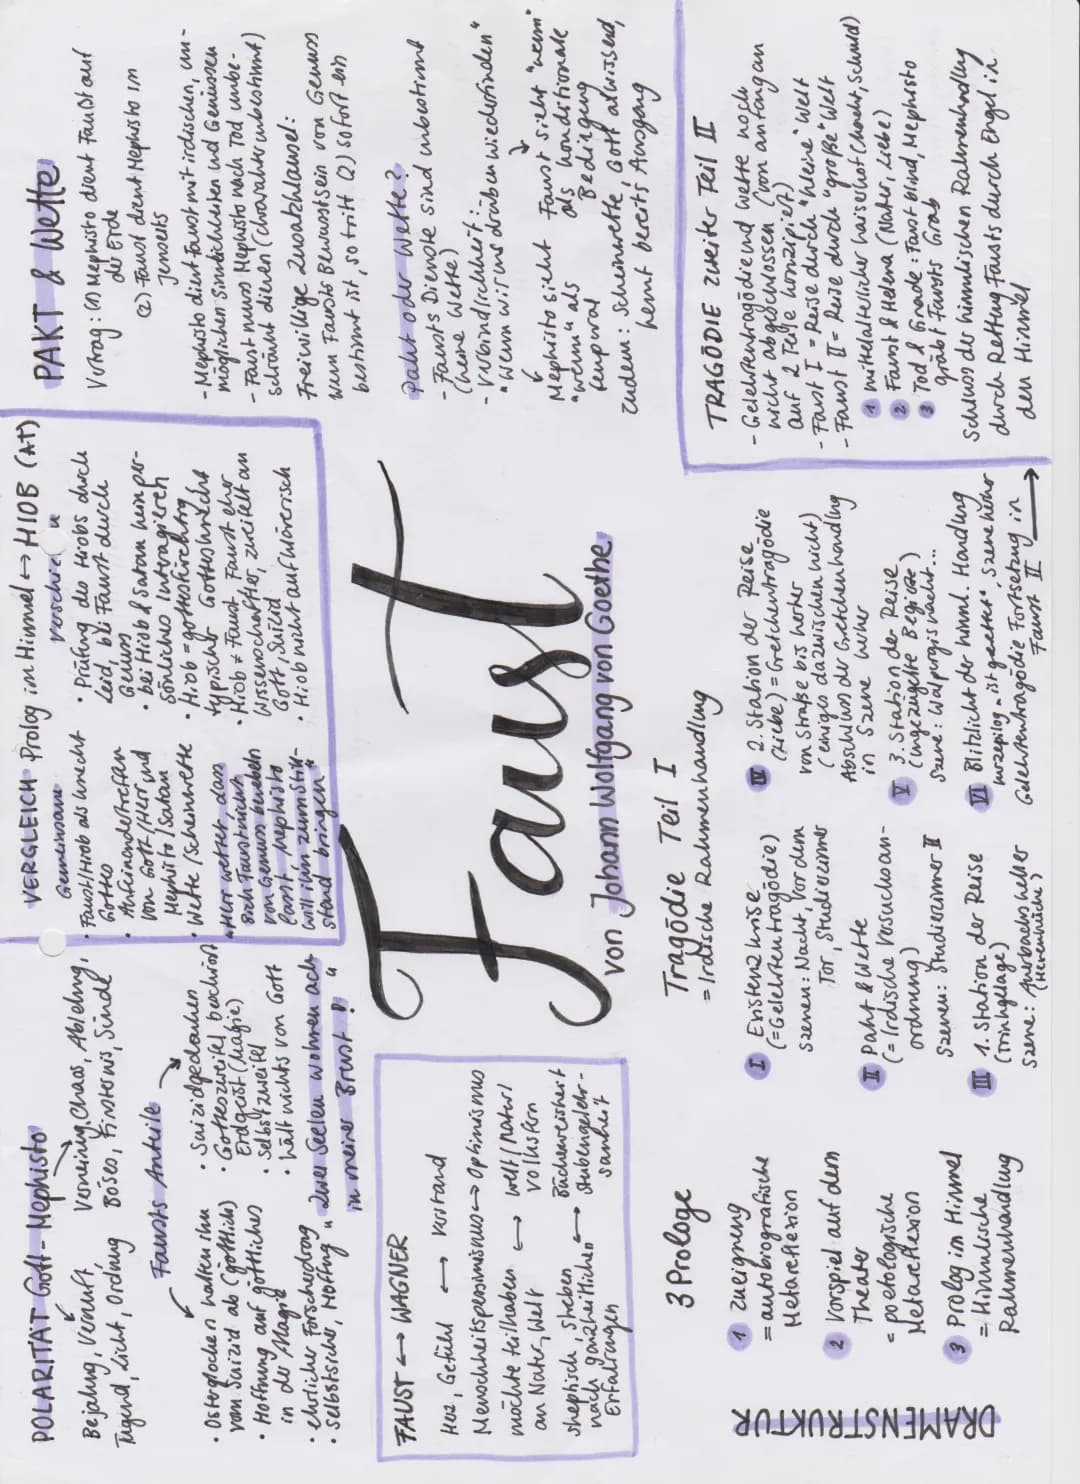 POLARITÄT Gott - Mephisto
Bejahung, Vernunft
Tugend, Licht, Ordnung
Verneinung, Chaos, Ablehnung,
Böses, Finsternis, Sünde
Fausts Anteile
• Osterglocken halten ihn
vom Suizid ab (göttlich)
• Hoffnung auf göttliches
in der Magie
• ehrlicher Forscherdrang
• selbstsicher, Hoffng
• Suizidgedanken
• Gotteszweifel, beschwört
Erdgeist (Magie)
• Selbstzweifel
• hält nichts von Gott
"Zwei Seelen wohnen ach
in meiner Brust!"
VERGLEICH Prolog im Himmel ↔ HIOB (AT)
Gemeinsam
• Faust/Hiob als Knecht
Gottes
• Aufeinandertreffen
von Gott/Herr und
Mephisto/Satan
• Wette/Scheinwette
"Herr wettet dass
sich Faust nicht
von Genuss benebeln
lässt, Mephisto
will ihn zum Still-
stand bringen"
• Prüfung des Hiobs durch
Leid, bei Faust durch
Genuss
• bei Hiob & Satan kein per-
sönliches Interagieren
• Hiob = gottesfürchtig
typischer Gottesknecht
• Hiob ≠ Faust, Faust eher
Wissenschaftler, zweifelt an
Gott, Suizid
• Hiob nicht aufwieglerisch
PAKT & Wette
Vertrag: (1) Mephisto dient Faust auf
der Erde
(2) Faust dient Mephisto im
Jenseits
- Mephisto dient Faust mit irdischen, un-
möglichen Sinnlichkeiten und Genüssen
- Faust muss Mephisto nach Tod unbe-
schränkt dienen (Charakter unbestimmt)
Freiwillige Zusatzklausel:
wenn Fausts Bewusstsein von Genuss
bestimmt ist, so tritt (2) sofort ein
Pakt oder Wette?
- Fausts Dienste sind unbestimmt
(keine Wette)
- Verbindlichkeit:
"wenn wir uns drüben wiederfinden"
Mephisto sieht
"wenn" als
temporal
Faust sieht "wenn"
als konditionale
Bedingung
Zudem: Scheinwette, Gott allwissend,
kennt bereits Ausgang
Faust
von Johann Wolfgang von Goethe
FAUST ↔ WAGNER
Herz, Gefühl ↔ Verstand
Menschheitspessimismus ↔ Optimismus
möchte teilhaben
an Natur, Welt
↔ Welt/Natur/
Volksfern
skeptisch, streben
nach ganzheitlichen
Erfahrungen
↔ Bücherweisheit
Stubengelehr-
samkeit
DRAMENSTRUKTUR
3 Prologe
1 Zueignung
= autobiografische
Metareflexion
2 Vorspiel auf dem
Theater
= poetologische
Metareflexion
3 Prolog im Himmel
= Himmlische
Rahmenhandlung
Tragödie Teil I
= Irdische Rahmenhandlung
I Existenzkrise
(= Gelehrtentragödie)
Szenen: Nacht, Vor dem
Tor, Studierzimmer
II Pakt & Wette
(= Irdische Versuchsan-
ordnung)
Szenen: Studierzimmer II
III 1. Station der Reise
(Trinkgelage)
Szene: Auerbachs Keller
(Hexenküche)
IV 2. Station der Reise
(Liebe) = Gretchentragödie
von Straße bis Kerker
(einiges dazwischen nicht)
Abschluss der Gretchenhandlung
in Szene Kerker
V 3. Station der Reise
(ungezügelte Begierde)
Szene: Walpurgisnacht...
VI Blitzlicht der himml. Handlung
Kurzepilog "ist gerettet", Szene Kerker
Gelehrtentragödie Fortsetzung in
Faust II
TRAGÖDIE zweiter Teil II
- Gelehrtentragödie und Wette noch
nicht abgeschlossen (von anfang an
auf 2 Teile konzipiert)
- Faust I = Reise durch "kleine" Welt
- Faust II = Reise durch "große" Welt
1 mittelalterlicher Kaiserhof (Macht, Schuld)
2 Faust & Helena (Natur, Liebe)
3 Tod & Gnade: Faust blind, Mephisto
gräbt Fausts Grab
Schluss der himmlischen Rahmenhandlung
durch Rettung Fausts durch Engel in
den Himmel